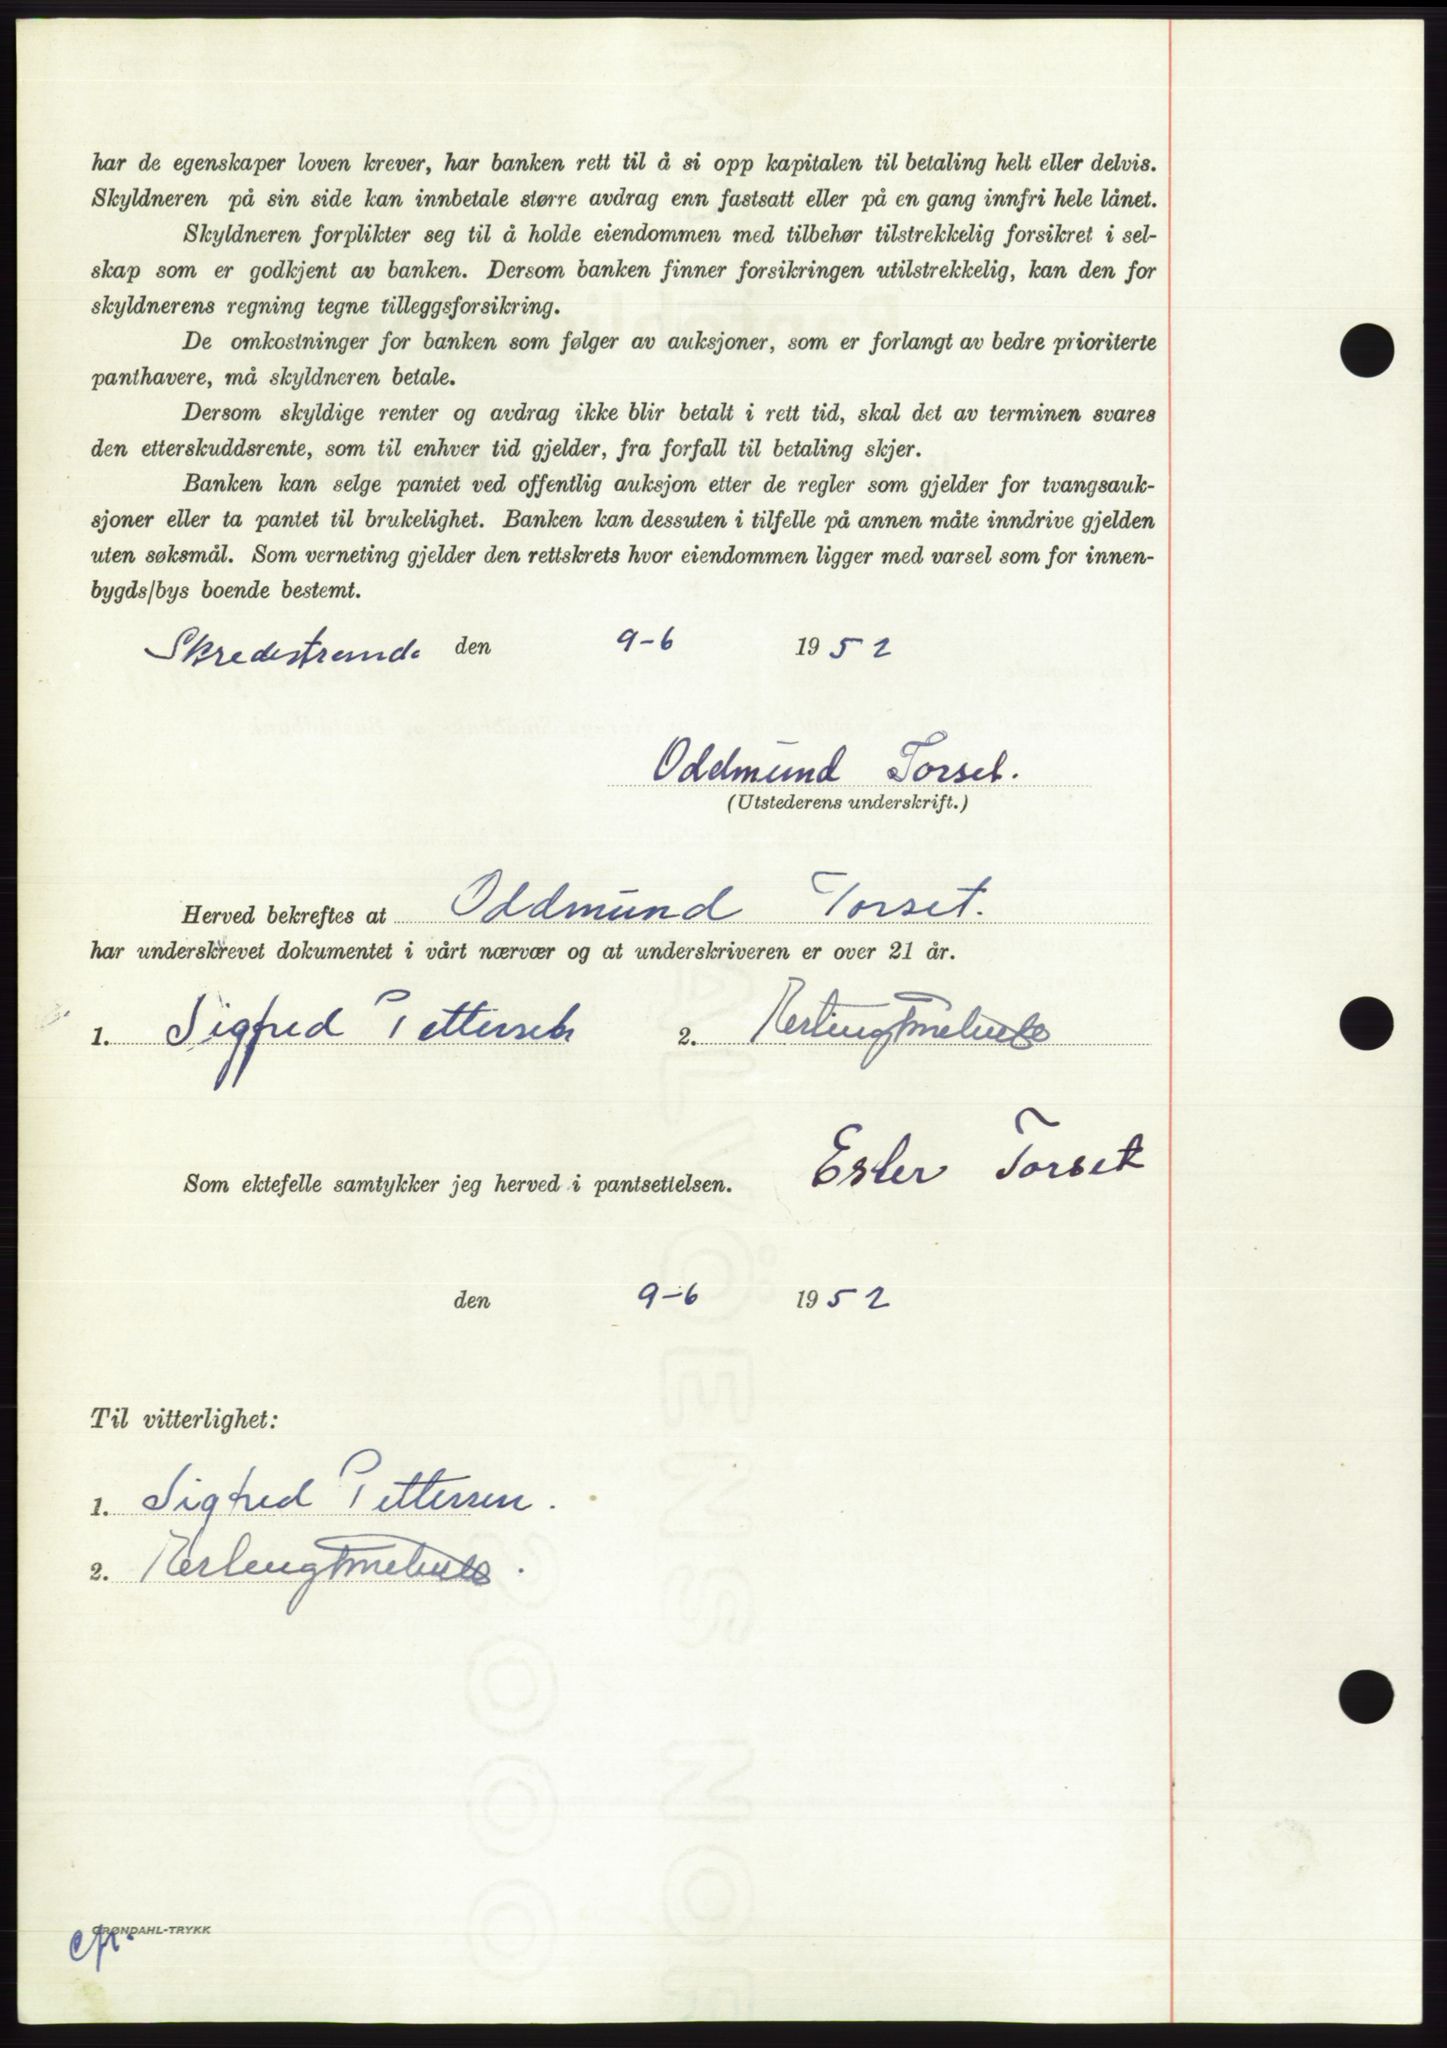 har de egenskaper loven krever, har banken rett til å si opp kapitalen til betaling helt eller delvis.
Skyldneren på sin side kan innbetale større avdrag enn fastsatt eller på en gang innfri hele lånet.
Skyldneren forplikter seg til å holde eiendommen med tilbehør tilstrekkelig forsikret i sel-
skap som er godkjent av banken. Dersom banken finner forsikringen utilstrekkelig, kan den for
skyldnerens regning tegne tilleggsforsikring.
De omkostninger for banken som følger av auksjoner, som er forlangt av bedre prioriterte
panthavere, må skyldneren betale.
Dersom skyldige renter og avdrag ikke blir betalt i rett tid, skal det av terminen svares
den etterskuddsrente, som til enhver tid gjelder, fra forfall til betaling skjer.
Banken kan selge pantet ved offentlig auksjon etter de regler som gjelder for tvangsauk-
sjoner eller ta pantet til brukelighet. Banken kan dessuten i tilfelle på annen måte inndrive gjelden
uten søksmål. Som verneting gjelder den rettskrets hvor eiendommen ligger med varsel som for innen-
bygds/bys boende bestemt.
den 9-6 1952
Oddmund Torset.
(Utstederens underskrift.)
Herved bekreftes at Oddmund Torset.
har underskrevet dokumentet i vårt nærvær og at underskriveren er over 21 år.
1. Sigfred Pettersen 2.
Ester Torset
Som ektefelle samtykker jeg herved i pantsettelsen.
den 9-6 1952
Til vitterlighet:
1. Sigfred Pettersen.
2.
GRØNDAHL-TRYKK